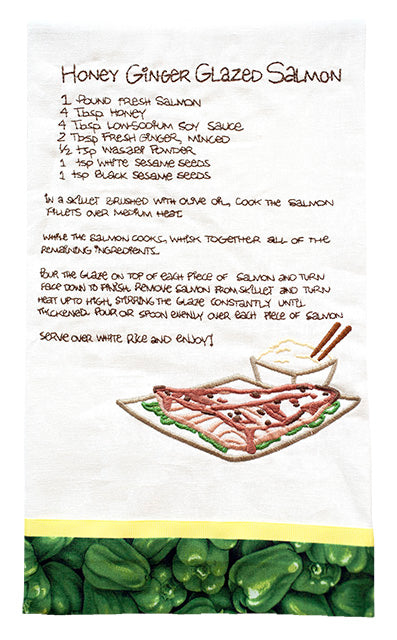 Honey Ginger Glazed Salmon
1 Pound Fresh Salmon
4 Tbsp Honey
4 Tbsp Low-Sodium Soy Sauce
2 Tbsp Fresh Ginger, Minced
½ tsp Wasabi Powder
1 tsp White Sesame Seeds
1 tsp Black Sesame Seeds
In a skillet brushed with olive oil, cook the salmon
fillets over medium heat.
While the salmon cooks, whisk together all of the
remaining ingredients.
Pour the glaze on top of each piece of salmon and turn
face down to finish. Remove salmon from skillet and turn
heat up to high, stirring the glaze constantly until
thickened. Pour or spoon evenly over each piece of salmon
Serve over white rice and enjoy!